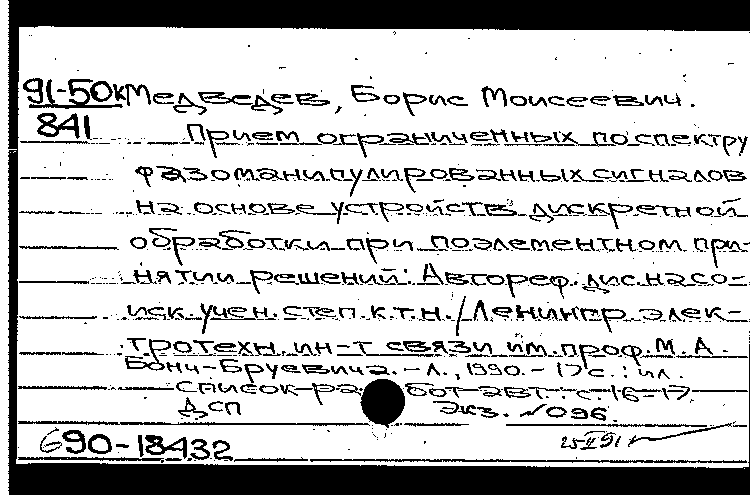 91-50к Медведев, Борис Моисеевич.
841 Прием ограниченных по спектру
фазоманипулированных сигналов
на основе устройств дискретной
обработки при поэлементном при-
нятии решений: Автореф. дис. на со-
иск. учен. степ. к.т.н. / Ленингр. элек-
тротехн. ин-т связи им. проф. М.А.
Бонч-Бруевича. - Л., 1990. - 17 с.: ил.
Список работ авт.: с. 16-17.
ДСП Экз. №096.
690-18432 25 II 91